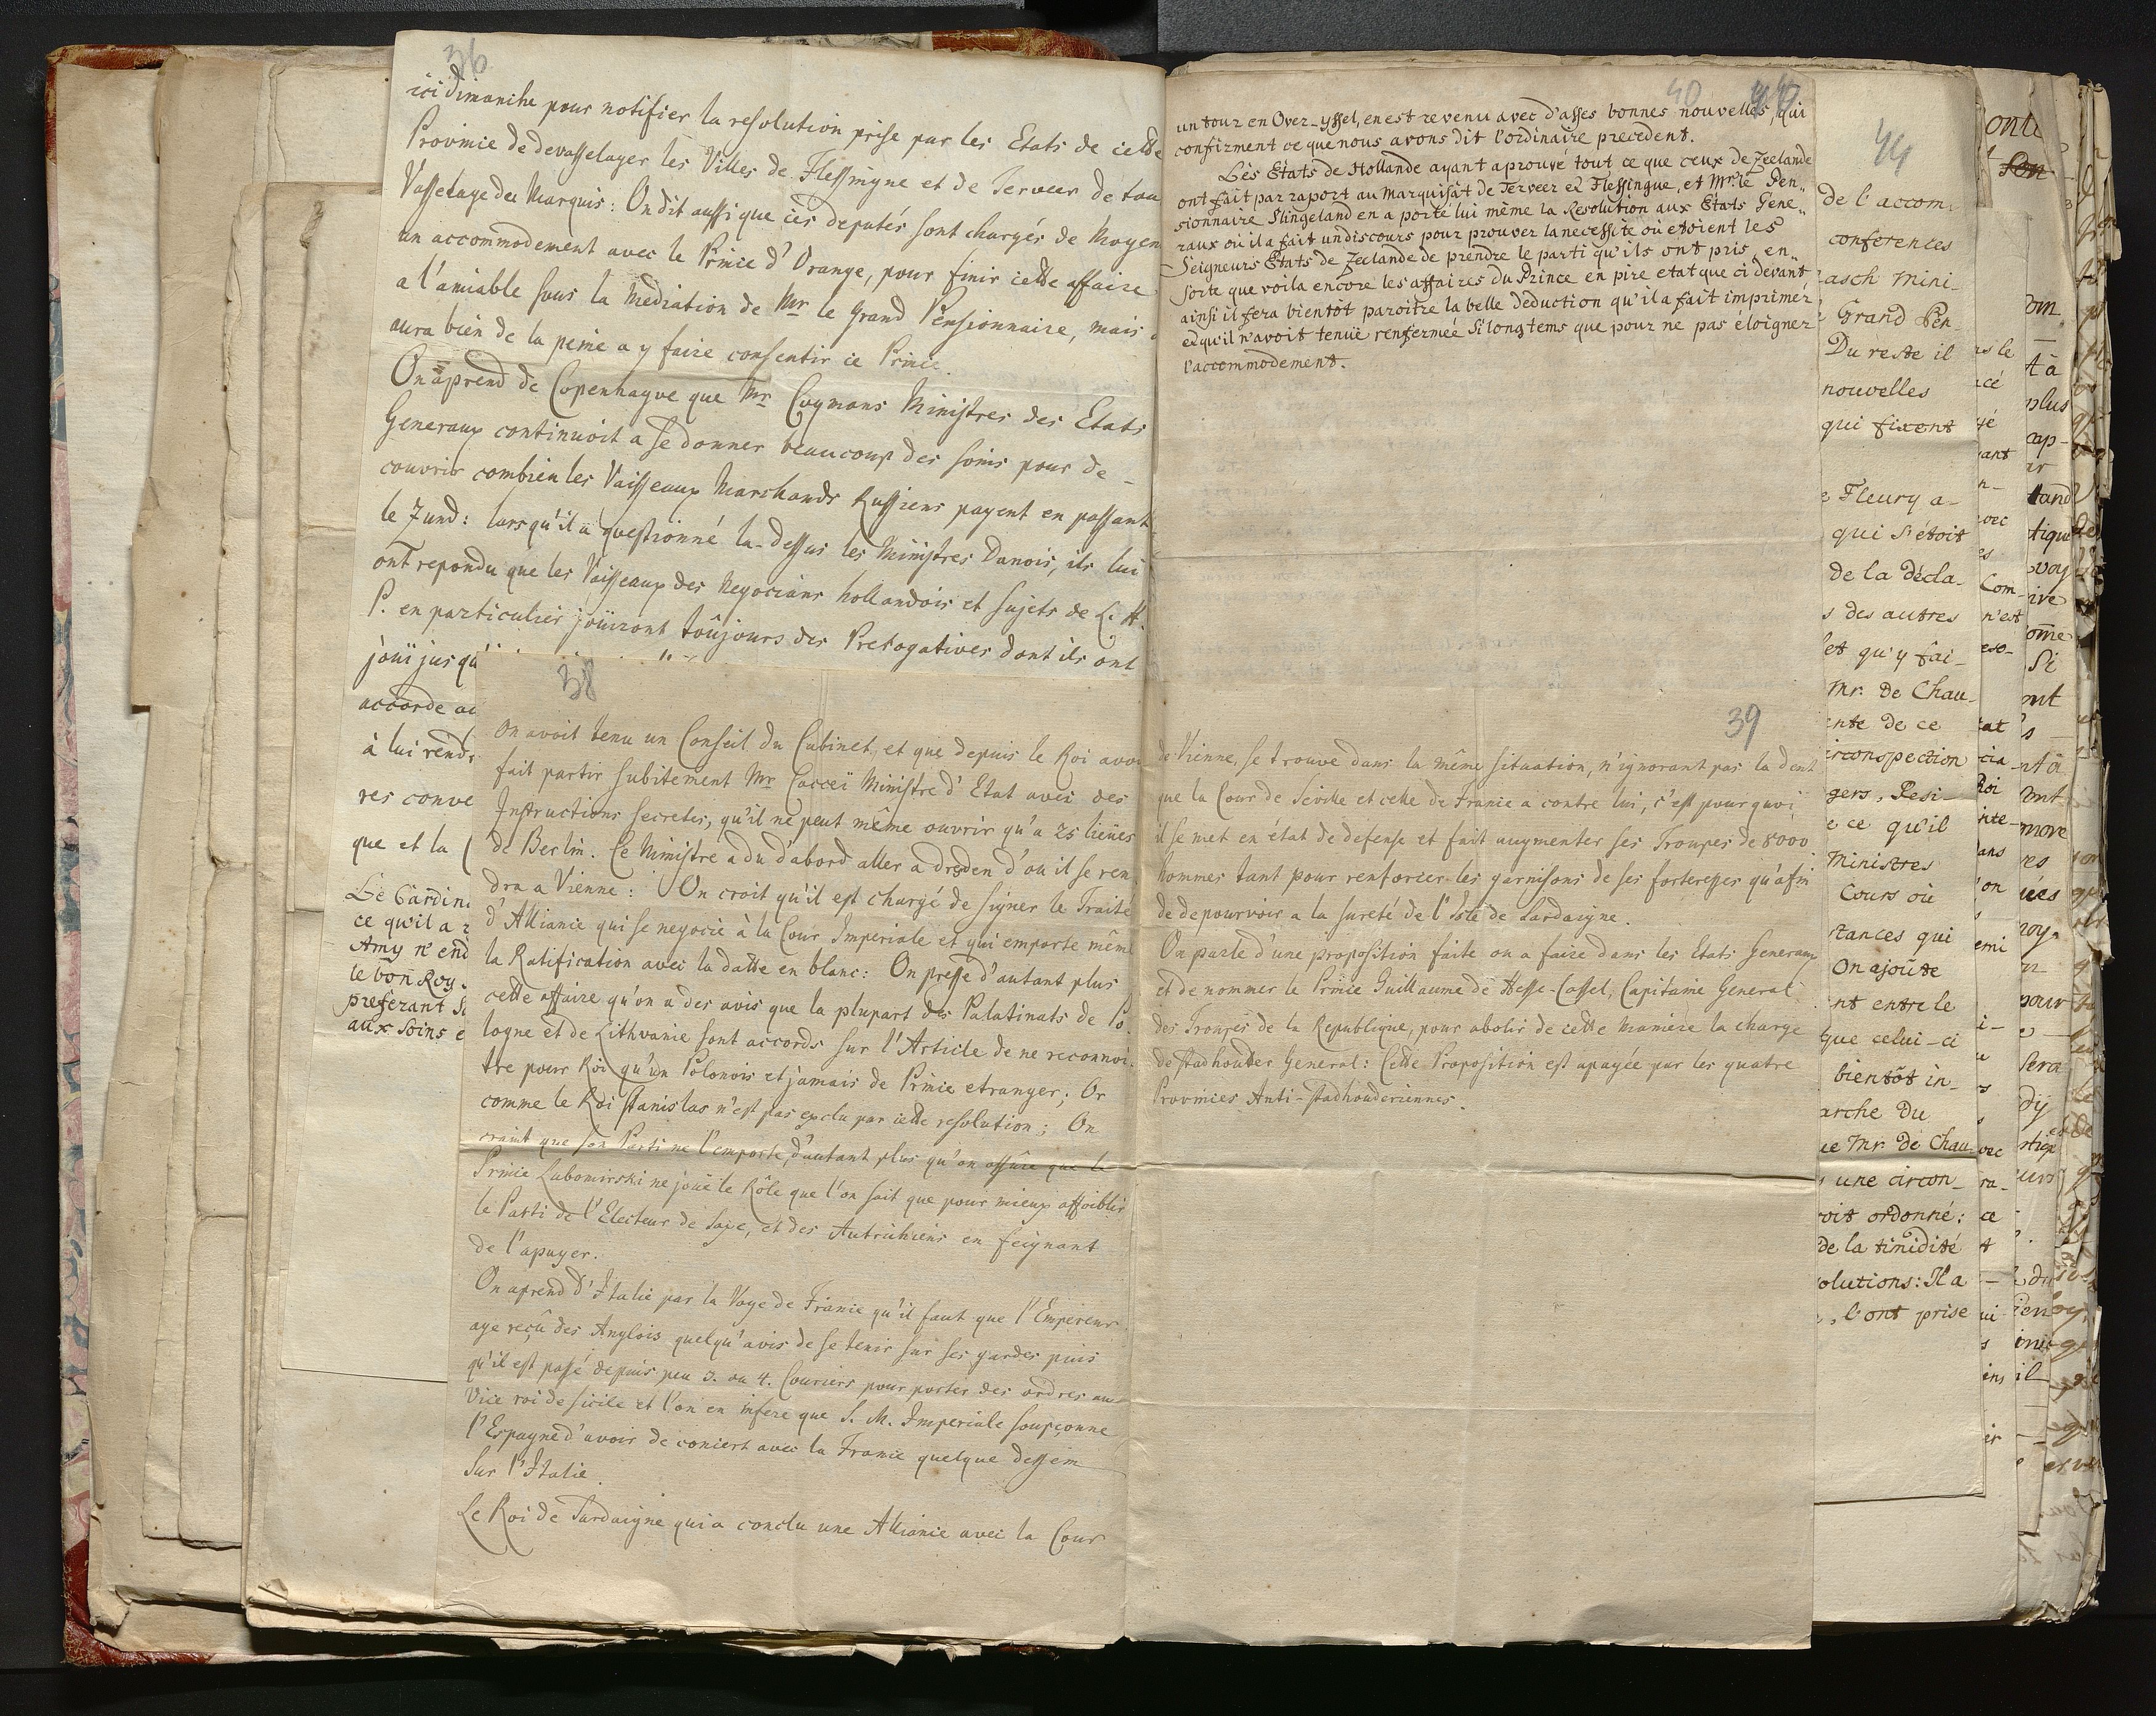 36
ici dimanche pour notifier la resolution prise par les Etats de cette
Province de devasselager les Villes de Flessingne et de Terveer de tou
Vasselage du Marquis: On dit aussi que ces deputés sont chargés de moyen
un accommodement avec le Prince d'Orange, pour finir cette affaire
a l'amiable sous la Mediation de Mr le Grand Pensionnaire, mais
aura bien de la peine a y faire consentir ce Prince.
On aprend de Copenhague que Mr Coymans Ministres des Etats
Generaux continuoit a se donner beaucoup des soins pour de-
couvrir combien les Vaisseaux Marchands Russiens payent en passant
le Zund: lorsqu'il a questionné la-dessus les Ministres Danois, ils lui
ont repondu que les Vaisseaux des Negocians hollandois et sujets de L. H.
P. en particulier joüiront toûjours des Prerogatives dont ils ont
joüi jusqu'
accorde au
à lui rendr
res conve
que et la
Le Cardin
ce qu'il a
Amy n'end
le bon Roy
preferant
aux soins
38
On avoit tenu un Conseil du Cabinet, et que depuis le Roi avoi
fait partir subitement Mr Cocceï Ministre d'Etat avec des
Instructions secretes, qu'il ne peut même ouvrir qu'a 25 lieües
de Berlin. Ce Ministre a du d'abord aller a dresden d'ou il se ren
dra a Vienne: On croit qu'il est chargé de signer le Traité
d'Alliance qui se negocie à la Cour Imperiale et qui emporte même
la Ratification avec la datte en blanc: On presse d'autant plus
cette affaire qu'on a des avis que la plupart des Palatinats de Po-
logne et de Lithvanie sont accords sur l'Article de ne reconnoi-
tre pour Roi qu'un Polonois et jamais de Prince etranger; Or
comme le Roi Stanislas n'est pas exclu par cette resolution; On
craint que son Parti ne l'emporte, d'autant plus qu'on assûre que le
Prince Lubomirski ne joüe le Rôle que l'on sait que pour mieux affoiblir
le Parti de l'Electeur de Saxe, et des Autrichiens en feignant
de l'apuyer.
On aprend d'Italie par la Voye de France qu'il faut que l'Empereur
aye reçû des Anglois quelqu'avis de se tenir sur ses gardes puis
qu'il est passé depuis peu 3. ou 4. Couriers pour porter des ordres au
Vice roi de Sicile et l'on en infere que S. M. Imperiale soupçonne
l'Espagne d'avoir de concert avec la France quelque dessein
sur l'Italie.
Le Roi de Sardaigne qui a conclu une Alliance avec la Cour
40
un tour en Over-yssel, en est revenu avec d'asses bonnes nouvelles, qui
confirment ce que nous avons dit l'ordinaire precedent.
Les Etats de Hollande ayant aprouvé tout ce que ceux de Zeelande
ont fait par raport au Marquisat de Terveer et Flessingue, et Mr. le Pen„
sionnaire Slingeland en a porté lui même la Resolution aux Etats Gene„
raux ou il a fait un discours pour prouver la necessite ou etoient les
Seigneurs Etats de Zeelande de prendre le parti qu'ils ont pris, en„
sorte que voila encore les affaires du Prince en pire etat que ci devant
ainsi il fera bientôt paroitre la belle deduction qu'il a fait imprimer
et qu'il n'avoit tenuë renfermée si longtems que pour ne pas éloigner
l'accommodement.
39
de Vienne, se trouve dans la même situation, n'ignorant pas la dent
que la Cour de Seville et celle de France a contre lui, c'est pourquoi
il se met en état de defense et fait augmenter ses Troupes de 8000
hommes tant pour renforcer les garnisons de ses forteresses qu'afin
de depourvoir a la sureté de l'Isle de Sardaigne.
On parle d'une proposition faite ou a faire dans les Etats Generaux
et de nommer le Prince Guillaume de Hesse-Cassel, Capitaine General
des Troupes de la Republique, pour abolir de cette maniere la charge
de Stadhouder General: Cette Proposition est apuyée par les quatre
Provinces Anti-Stadhouderiennes.
44
de l'accom
conferences
asch Mini-
Grand Pen-
Du reste il
nouvelles
qui fixent
e Fleury a-
qui s'étoit
de la décla-
s des autres
et qu'y fai-
Mr. de Chau-
ente de ce
irconspection
gers, Resi-
e ce qu'il
Ministres
Cours où
stances qui
On ajoûte
nt entre le
que celui-ci
bientôt in-
arche du
ue Mr. de Chau-
une circon-
oit ordonné:
de la timidité
olutions: Il a
, l'ont prise